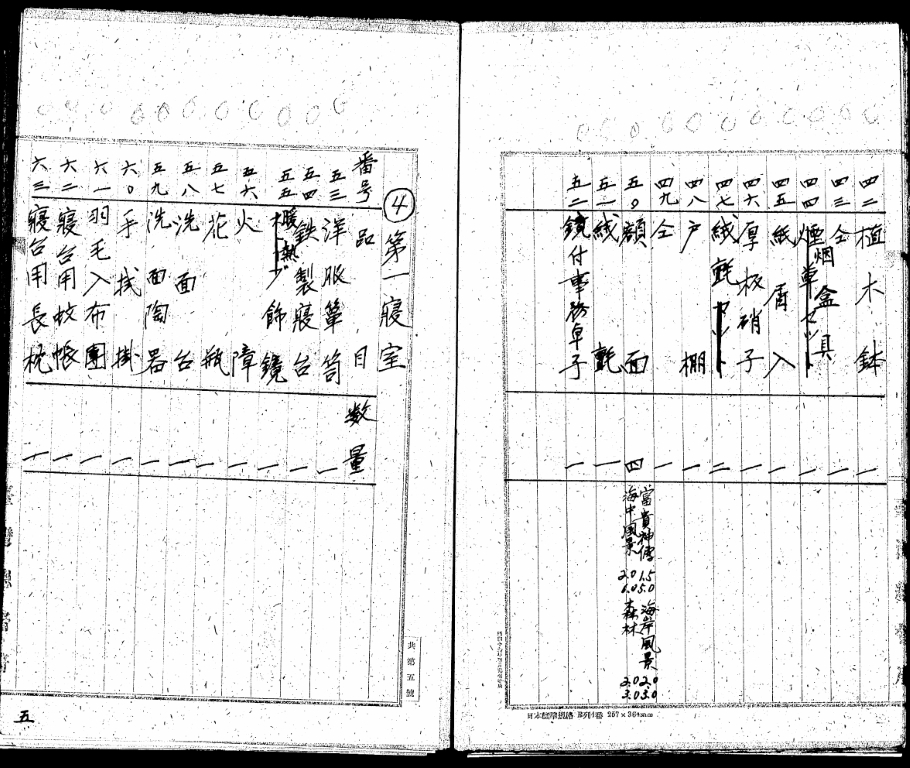 四二 植木鉢 一
四三 仝 一
四四 煙草セット 煙盒具 一
四五 紙屑入 一
四六 厚板硝子 一
四七 絨氈 二
四八 戸棚 一
四九 仝 一
五〇 額面 四 富貴神傳 1.5 5.0 海岸風景 2.0 3.0
海中風景 2.0 6.0 森林 2.0 3.0
五一 絨氈 一
五二 鏡付事務卓子 一
日本標準規格 B列4番 257×364mm
④ 第一寢室
番号 品目 数量
五三 洋服簞笥 一
五四 鉄製寢台 一
五五 飾鏡 一
五六 火障 一
五七 花瓶 一
五八 洗面台 一
五九 洗面陶器 一
六〇 手拭掛 一
六一 羽毛入布團 一
六二 寢台用蚊帳 一
六三 寢台用長枕 一
共第五號
五